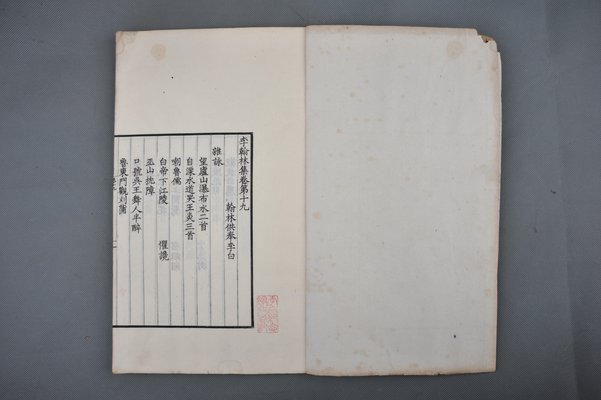 李翰林集卷第十九
翰林供奉李白
雜詠
望廬山瀑布水二首
自溧水道哭王炎三首
嘲魯儒
白帝下江陵 懼讒
巫山枕障
口號吳王舞人半醉
魯東門觀刈蒲